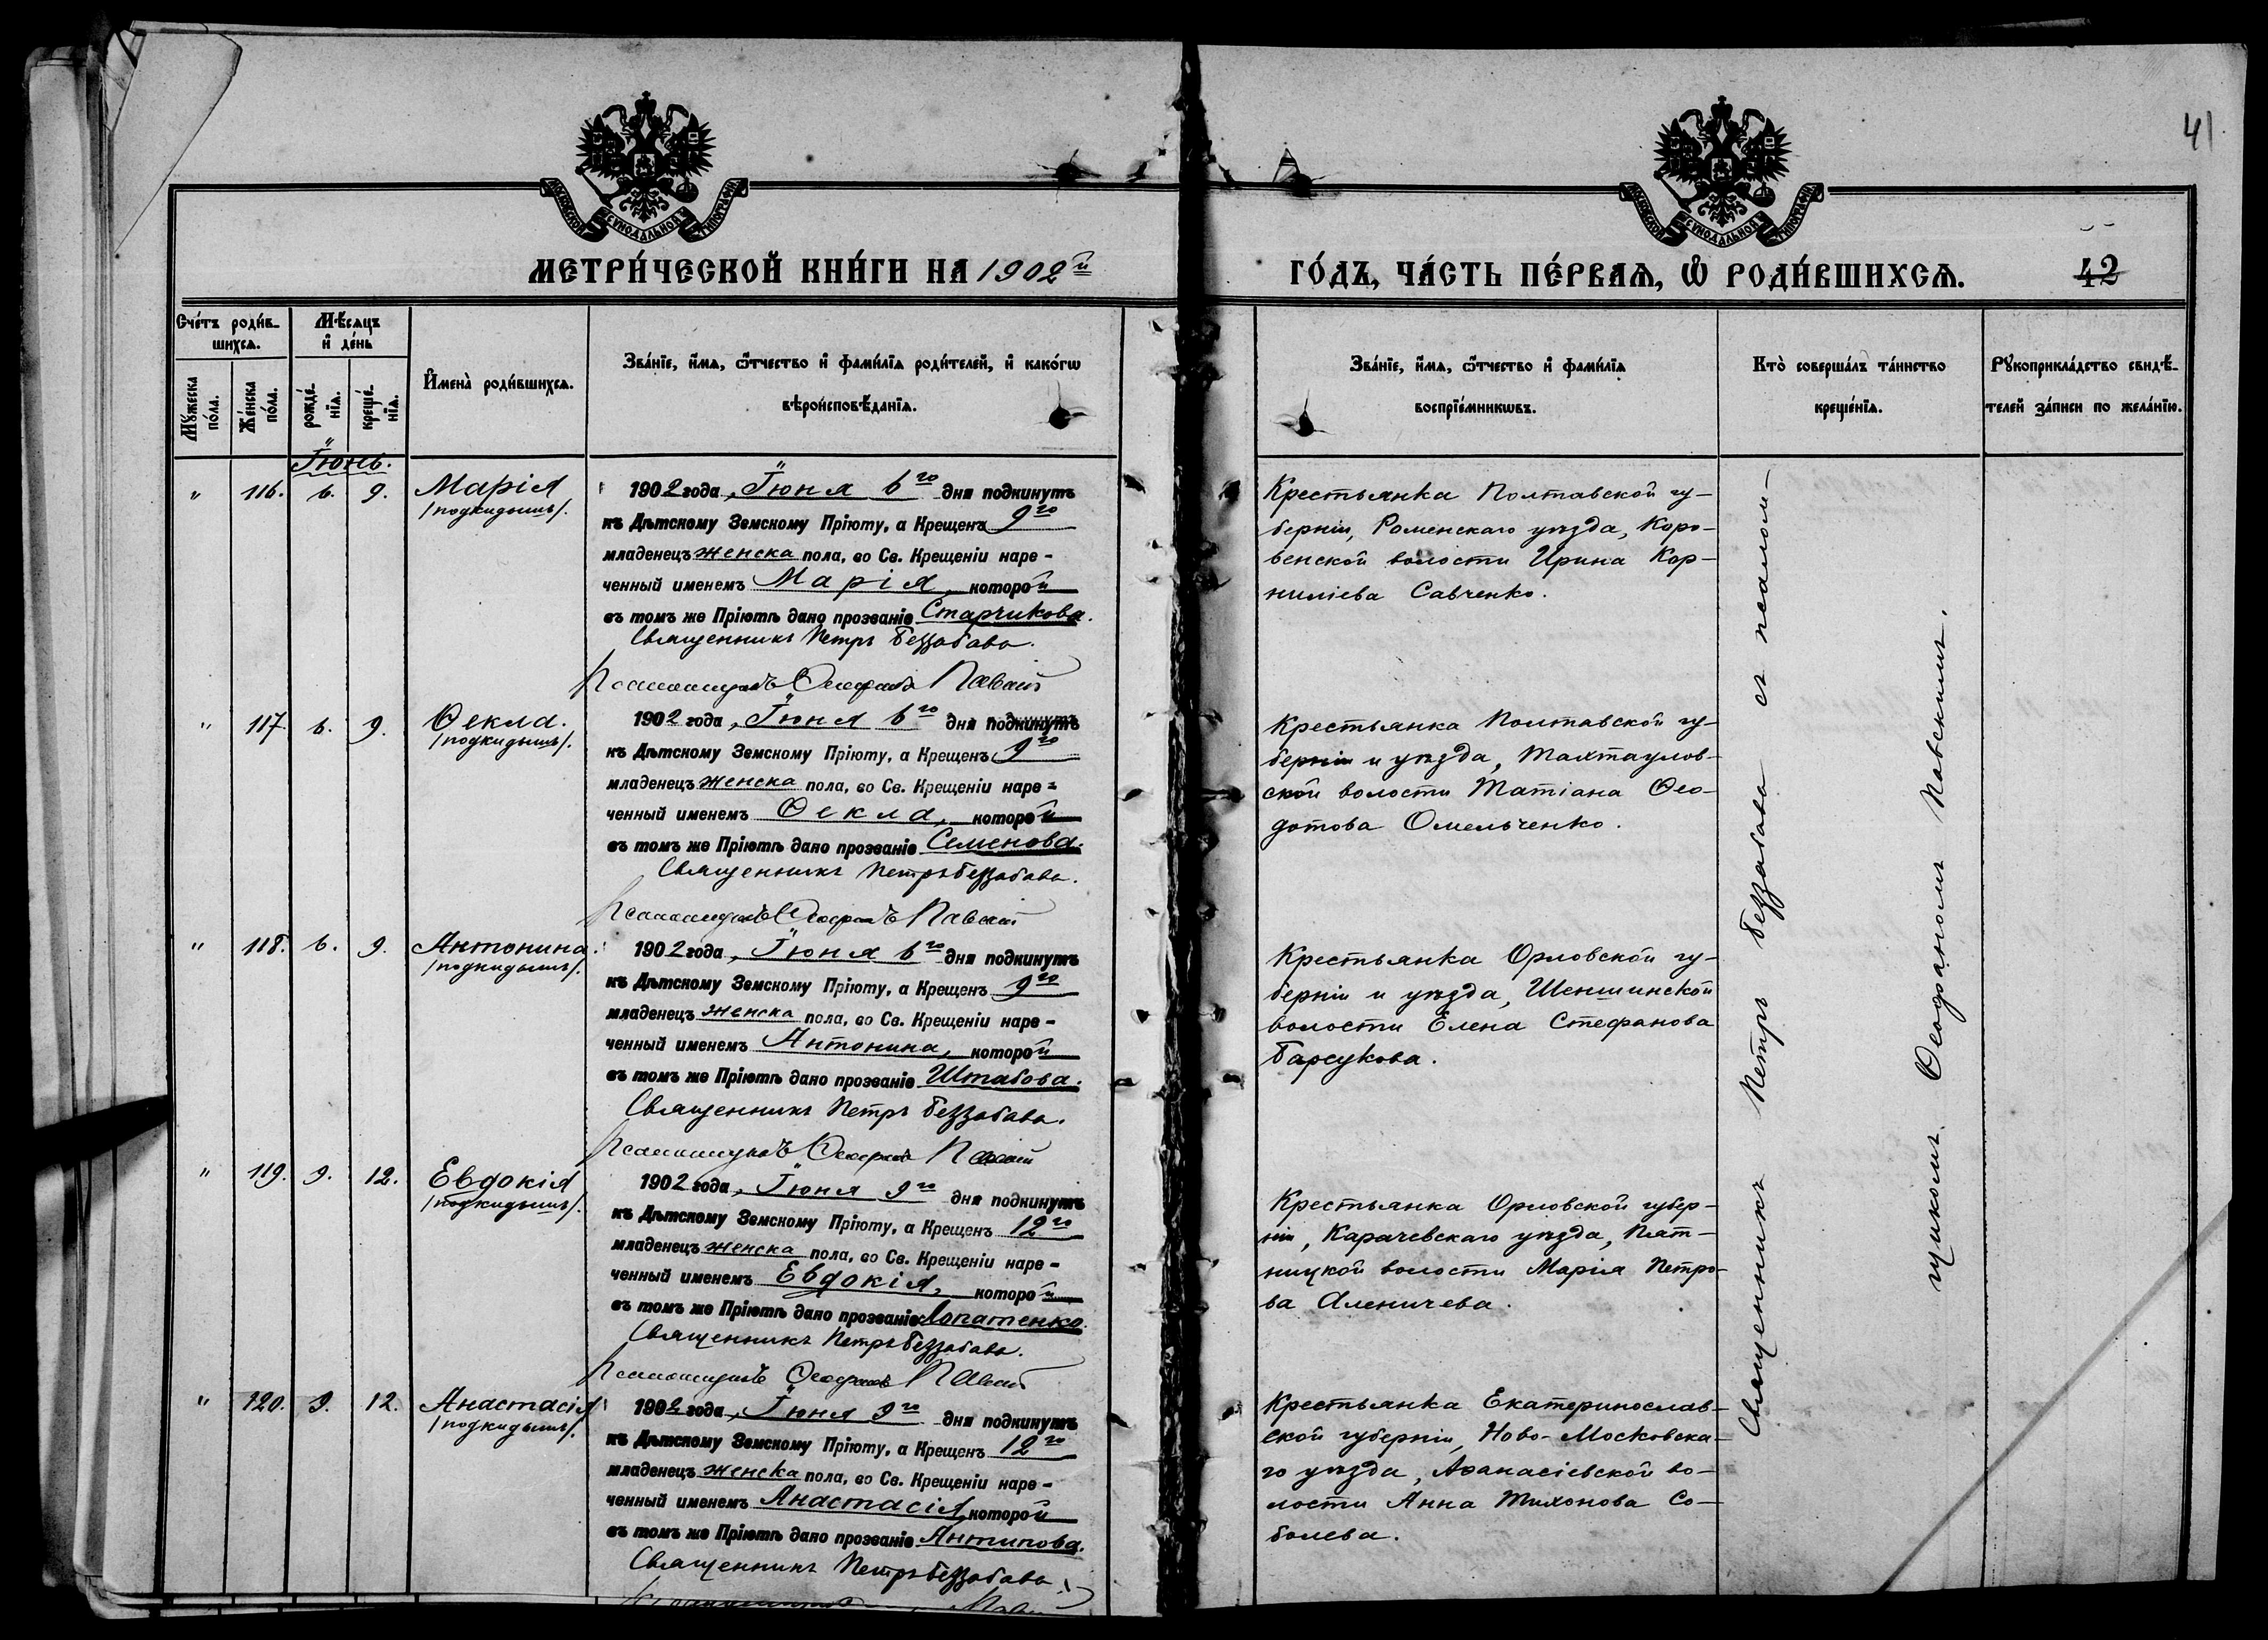 МОСКОВСКОЙ СѴНОДАЛЬНОЙ ТИПОГРАФІИ
МОСКОВСКОЙ СѴНОДАЛЬНОЙ ТИПОГРАФІИ
41
МЕТРИ́ЧЕСКОЙ КНИ́ГИ НА 1902й
ГО́ДЪ, ЧА́СТЬ ПЕ́РВАѦ, Ѿ РОДИ́ВШИХСѦ.
42
Сче́тъ роди́в-
шихсѧ.
Мꙋжеска
по́ла.
Же́нска
по́ла.
Мѣ́сѧцъ
и҆ де́нь
рожде́-
нїѧ.
креще́-
нїѧ.
И҆мена̀ роди́вшихсѧ.
Зва́нїе, и҆́мѧ, ѻ҆́тчество и҆ фами́лїѧ роди́телей, и҆ како́гѡ
вѣроисповѣ́данїѧ.
Зва́нїе, и҆́мѧ, ѻ҆́тчество и҆ фами́лїѧ
воспрїе́мникѡвъ.
Кто̀ соверша́лъ та́инство
креще́нїѧ.
Рꙋкоприкла́дство свидѣ́-
телей за́писи по жела́нїю.
Іюнь.
" 116. 6. 9. Марія
/подкидышъ/.
1902 года, Іюня 6го дня подкинутъ
къ Дѣтскому Земскому Пріюту, а Крещенъ 9го
младенецъ женска пола, во Св. Крещеніи наре-
ченный именемъ Марія, которой
въ томъ же Пріютѣ дано прозваніе Старчикова.
Священникъ Петръ Беззабава.
Псаломщикъ Ѳеофанъ Павскій
Крестьянка Полтавской гу-
берніи, Роменскаго уѣзда, Коро-
венской волости Ирина Кор-
ниліева Савченко.
" 117. 6. 9. Ѳекла.
/подкидышъ/.
1902 года, Іюня 6го дня подкинутъ
къ Дѣтскому Земскому Пріюту, а Крещенъ 9го
младенецъ женска пола, во Св. Крещеніи наре-
ченный именемъ Ѳекла, которой
въ томъ же Пріютѣ дано прозваніе Семенова.
Священникъ Петръ Беззабава.
Псаломщикъ Ѳеофанъ Павскій
Крестьянка Полтавской гу-
берніи и уѣзда, Тахтаулов-
ской волости Татіана Ѳео-
дотова Омельченко.
" 118. 6. 9. Антонина.
/подкидышъ/.
1902 года, Іюня 6го дня подкинутъ
къ Дѣтскому Земскому Пріюту, а Крещенъ 9го
младенецъ женска пола, во Св. Крещеніи наре-
ченный именемъ Антонина, которой
въ томъ же Пріютѣ дано прозваніе Штабова.
Священникъ Петръ Беззабава.
Псаломщикъ Ѳеофанъ Павскій
Крестьянка Орловской гу-
берніи и уѣзда, Шеншинской
волости Елена Стефанова
Барсукова.
" 119. 9. 12. Евдокія
/подкидышъ/.
1902 года, Іюня 9го дня подкинутъ
къ Дѣтскому Земскому Пріюту, а Крещенъ 12го
младенецъ женска пола, во Св. Крещеніи наре-
ченный именемъ Евдокія, которой
въ томъ же Пріютѣ дано прозваніе Лопатенко.
Священникъ Петръ Беззабава.
Псаломщикъ Ѳеофанъ Павскій
Крестьянка Орловской губер-
ніи, Карачевскаго уѣзда, Пят-
ницкой волости Марія Петро-
ва Аленичева.
" 120. 9. 12. Анастасія
/подкидышъ/.
1902 года, Іюня 9го дня подкинутъ
къ Дѣтскому Земскому Пріюту, а Крещенъ 12го
младенецъ женска пола, во Св. Крещеніи наре-
ченный именемъ Анастасія, которой
въ томъ же Пріютѣ дано прозваніе Антипова.
Священникъ Петръ Беззабава
Крестьянка Екатеринослав-
ской губерніи, Ново-Московска-
го уѣзда, Аѳанасіевской во-
лости Анна Тихонова Со-
болева.
Священникъ Петръ Беззабава съ псалом-
щикомъ Ѳеофаномъ Павскимъ.